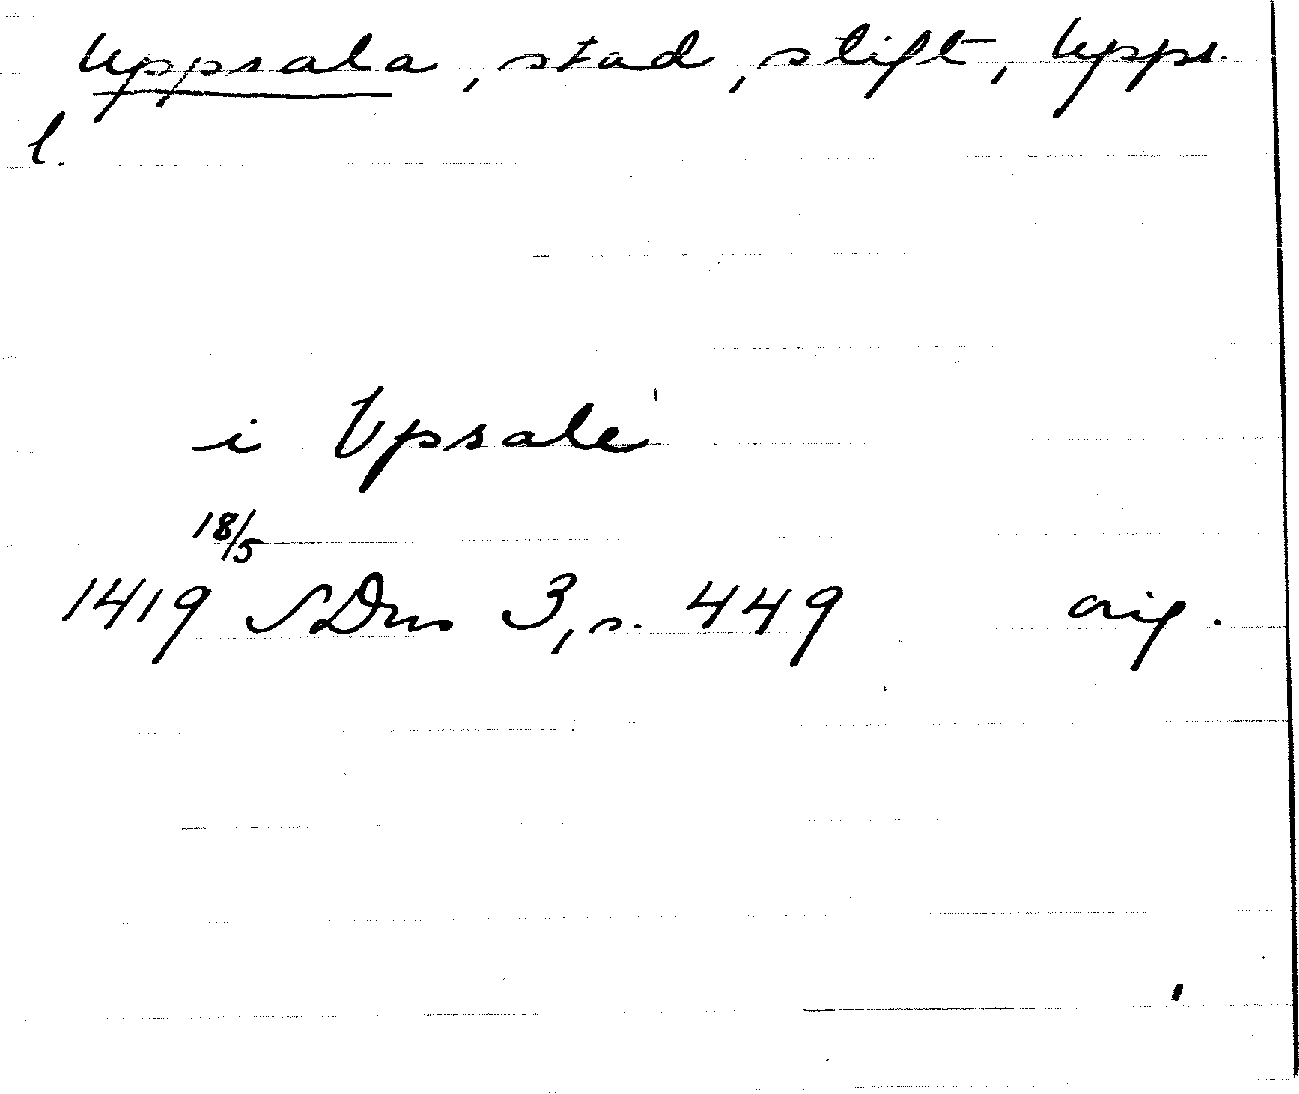 Uppsala, stad, stift, Upps.
l.
i Upsale
18/5
1419 SDns 3, s. 449 orig.